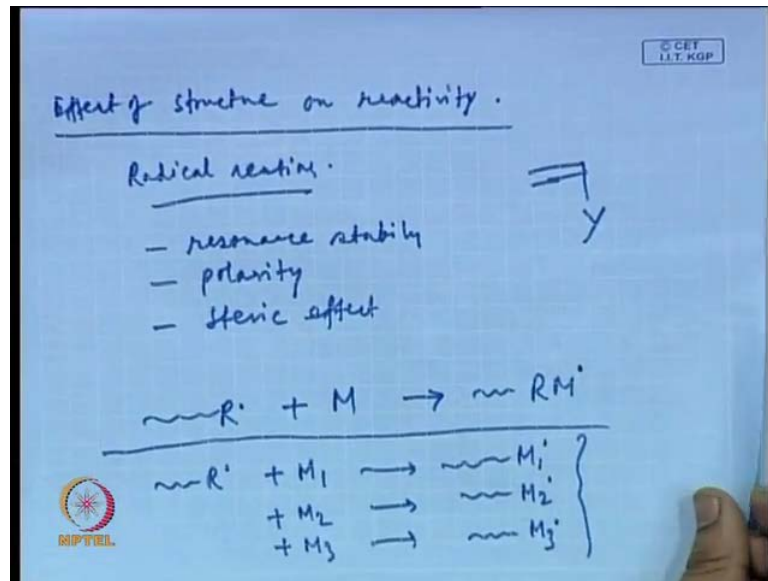 © CET
I.I.T. KGP
Effect of structure on reactivity.
Radical reaction.
– resonance stability
– polarity
– steric effect
Y
R· + M → RM·
R· + M₁ → M₁·
+ M₂ → M₂·
+ M₃ → M₃·
NPTEL